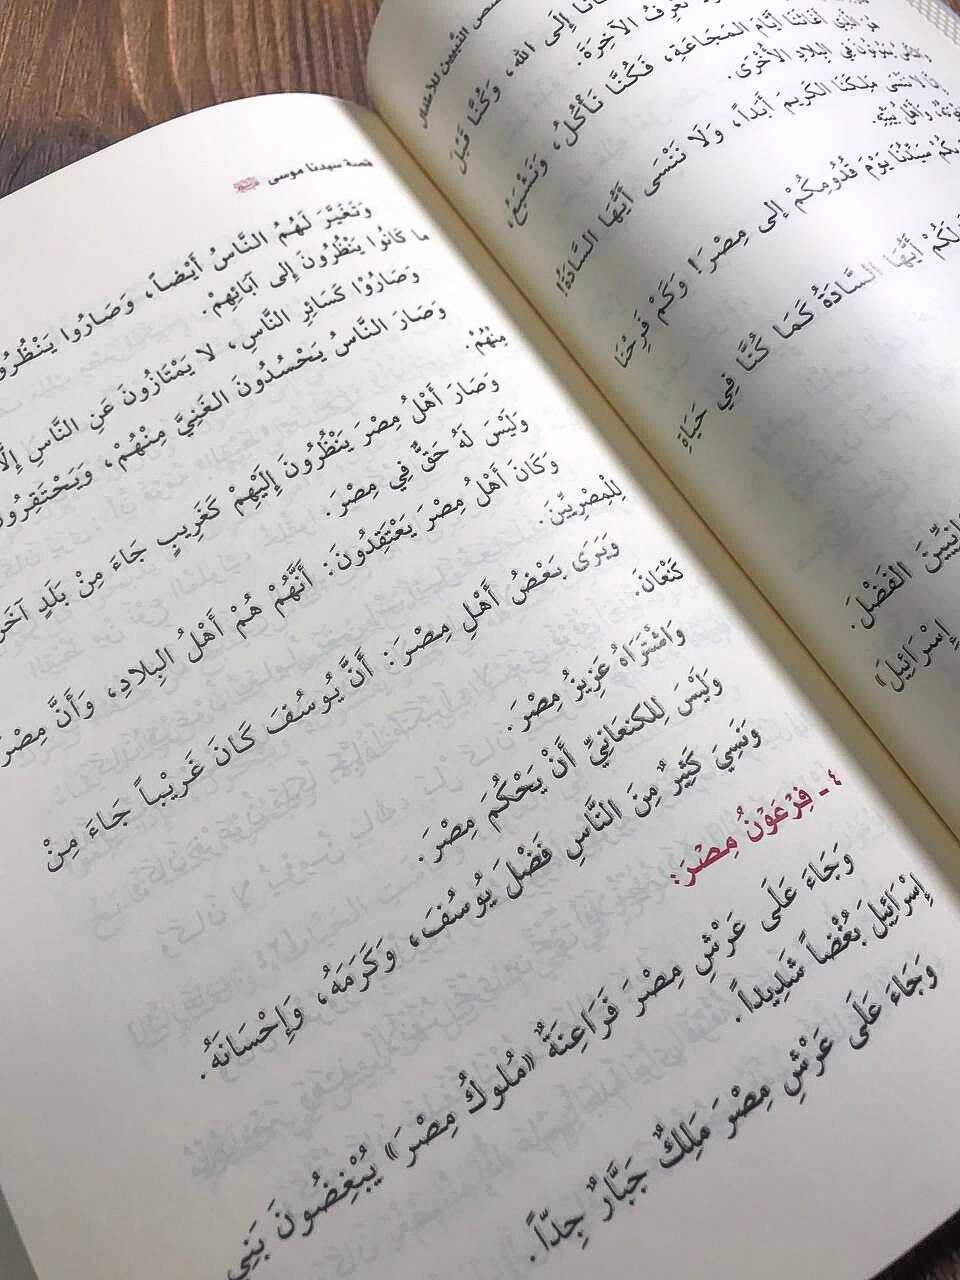 قصص النبيين للأطفال
إِلَى اللهِ، وَكُنَّا قَبْلَ
نَعْرِفُ الآخِرَةَ.
أَيَّامَ المَجَاعَةِ، فَكُنَّا نَأْكُلُ، وَنَشْبَعُ،
فِي البِلَادِ الأُخْرَى.
نَنْسَى مَلِكَنَا الكَرِيمَ أَبَداً، وَلَا نَنْسَى أَيُّهَا السَّادَةُ!
وَأَهْلَ بَيْتِهِ.
سَيِّدُنَا يَوْمَ قُدُومِكُمْ إِلَى مِصْرَ! وَكَمْ فَرِحْنَا
لَكُمْ أَيُّهَا السَّادَةُ كَمَا كُنَّا فِي حَيَاةِ
الفَضْلَ.
إِسْرَائِيلَ»
قصة سيدنا موسى
وَتَغَيَّرَ لَهُمُ النَّاسُ أَيْضاً، وَصَارُوا يَنْظُرُونَ
مَا كَانُوا يَنْظُرُونَ إِلى آبَائِهِمْ.
وَصَارُوْا كَسَائِرِ النَّاسِ، لا يَمْتَازُونَ عَنِ النَّاسِ إِلَّا
وَصَارَ النَّاسُ يَحْسُدُونَ الغَنِيَّ مِنْهُمْ، وَيَحْتَقِرُونَ
مِنْهُمْ.
وَصَارَ أَهْلُ مِصْرَ يَنْظُرُونَ إِلَيْهِمْ كَغَرِيبٍ جَاءَ مِنْ بَلَدٍ آخَرَ
وَلَيْسَ لَهُ حَقٌّ فِي مِصْرَ.
وَكَانَ أَهْلُ مِصْرَ يَعْتَقِدُونَ: أَنَّهُمْ هُمْ أَهْلُ البِلَادِ، وَأَنَّ مِصْرَ
لِلْمِصْرِيِّينَ.
وَيَرَى بَعْضُ أَهْلِ مِصْرَ: أَنَّ يُوسُفَ كَانَ غَرِيْباً جَاءَ مِنْ
كَنْعَانَ.
وَاشْتَرَاهُ عَزِيزُ مِصْرَ.
وَلَيْسَ لِلكَنعَانِيِّ أَنْ يَحْكُمَ مِصْرَ.
وَنَسِيَ كَثِيرٌ مِنَ النَّاسِ فَضْلَ يُوسُفَ، وَكَرَمَهُ، وَإِحْسَانَهُ.
٤ - فِرْعَوْنُ مِصْرَ:
وَجَاءَ عَلَى عَرْشِ مِصْرَ فَرَاعِنَةٌ «مُلوكُ مِصْرَ» يُبْغِضُونَ بَنِي
إِسْرَائِيلَ بُغْضاً شَدِيداً.
وَجَاءَ عَلَى عَرْشِ مِصْرَ مَلِكٌ جَبَّارٌ جِدّاً.